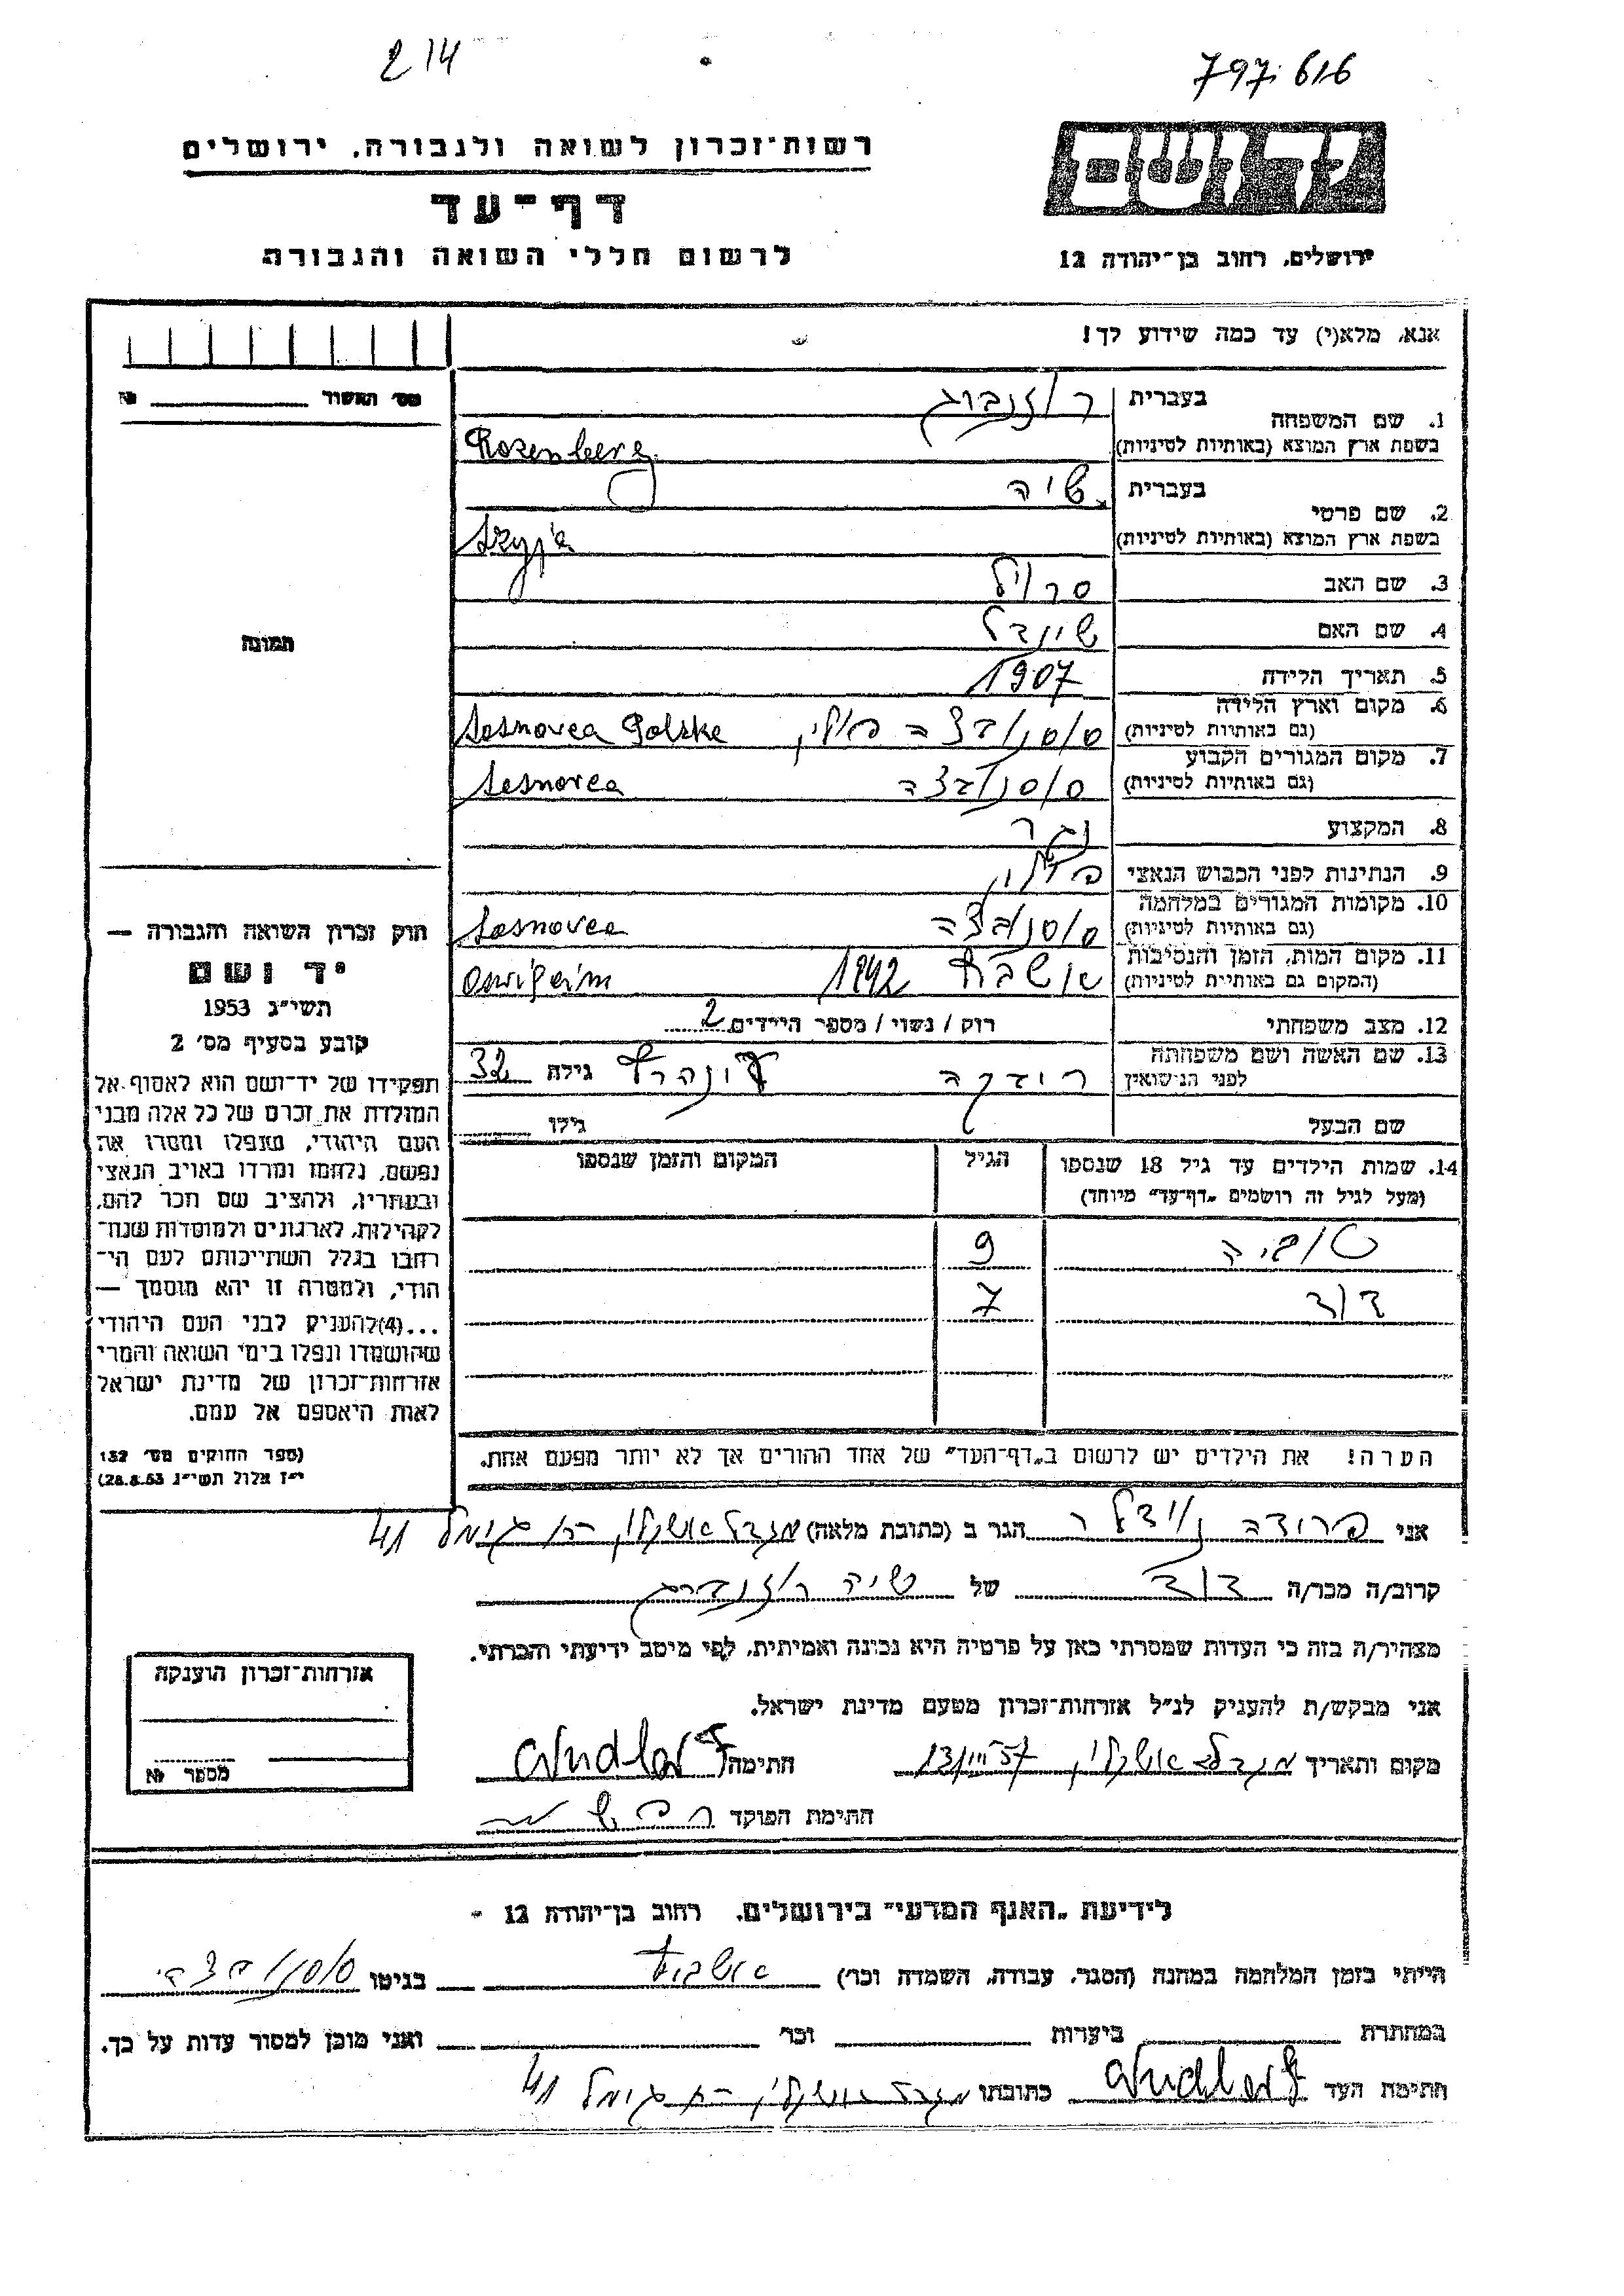 214
797/616
רשות־זכרון לשואה ולגבורה. ירושלים
יד ושם
דף־עד
לרשום חללי השואה והגבורה
ירושלים, רחוב בן־יהודה 12
אנא, מלא(י) עד כמה שידוע לך!
מס׳ האשור №
1. שם המשפחה
בעברית רוזנברג
בשפת ארץ המוצא (באותיות לטיניות) Rozenberg
2. שם פרטי
בעברית שיה
בשפת ארץ המוצא (באותיות לטיניות) Szyja
3. שם האב
4. שם האם שיינדל
5. תאריך הלידה 1907
6. מקום וארץ הלידה
(גם באותיות לטיניות) סוסנובצה פולין Sosnovea Polske
7. מקום המגורים הקבוע
(גם באותיות לטיניות) סוסנובצה Sosnovea
8. המקצוע נגר
9. הנתינות לפני הכבוש הנאצי פולין
10. מקומות המגורים במלחמה
(גם באותיות לטיניות) סוסנובצה Sosnovea
11. מקום המות, הזמן והנסיבות
(המקום גם באותיות לטיניות) אושביץ 1942
12. מצב משפחתי רוק / נשוי / מספר הילדים 2
13. שם האשה ושם משפחתה
לפני הנישואין רודקה גילה 32
שם הבעל גילו
14. שמות הילדים עד גיל 18 שנספו
(מעל לגיל זה רושמים „דף־עד” מיוחד)
הגיל
המקום והזמן שנספו
טוביה 9
דוד 7
הערה! את הילדים יש לרשום ב„דף־העד” של אחד ההורים אך לא יותר מפעם אחת.
תמונה
חוק זכרון השואה והגבורה —
יד ושם
תשי״ג 1953
קובע בסעיף מס׳ 2
תפקידו של יד־ושם הוא לאסוף אל
המולדת את זכרם של כל אלה מבני
העם היהודי, שנפלו ומסרו את
נפשם, נלחמו ומרדו באויב הנאצי
ובעוזריו, ולהציב שם וזכר להם,
לקהילות, לארגונים ולמוסדות שנח־
רחבו בגלל השתייכותם לעם הי־
הודי, ולמטרה זו יהא מוסמך —
...(4) להעניק לבני העם היהודי
שהושמדו ונפלו בימי השואה והמרי
אזרחות־זכרון של מדינת ישראל
לאות היאספם אל עמם.
(ספר החוקים מס׳ 132
י״ז אלול תשי״ג 28.8.53)
אני פרודה נוידלר הגר ב (כתובת מלאה) מגדל אשקלון רח גימל 41
קרוב/ה מכר/ה דוד של שיה רוזנברג
מצהיר/ה בזה כי העדות שמסרתי כאן על פרטיה היא נכונה ואמיתית, לפי מיטב ידיעתי והכרתי.
אני מבקש/ת להעניק לנ״ל אזרחות־זכרון מטעם מדינת ישראל.
מקום ותאריך מגדל אשקלון 13/III 57 חתימה
חתימת הפוקד
אזרחות־זכרון הוענקה
מספר №
לידיעת „האגף המדעי” בירושלים. רחוב בן־יהודה 12 -
הייתי בזמן המלחמה במחנה (הסגר, עבודה, השמדה וכר) אושביץ בגיטו
במחתרת ביערות וכר ואני מוכן למסור עדות על כך.
חתימת העד כתובתו מגדל אשקלון רח גימל 41